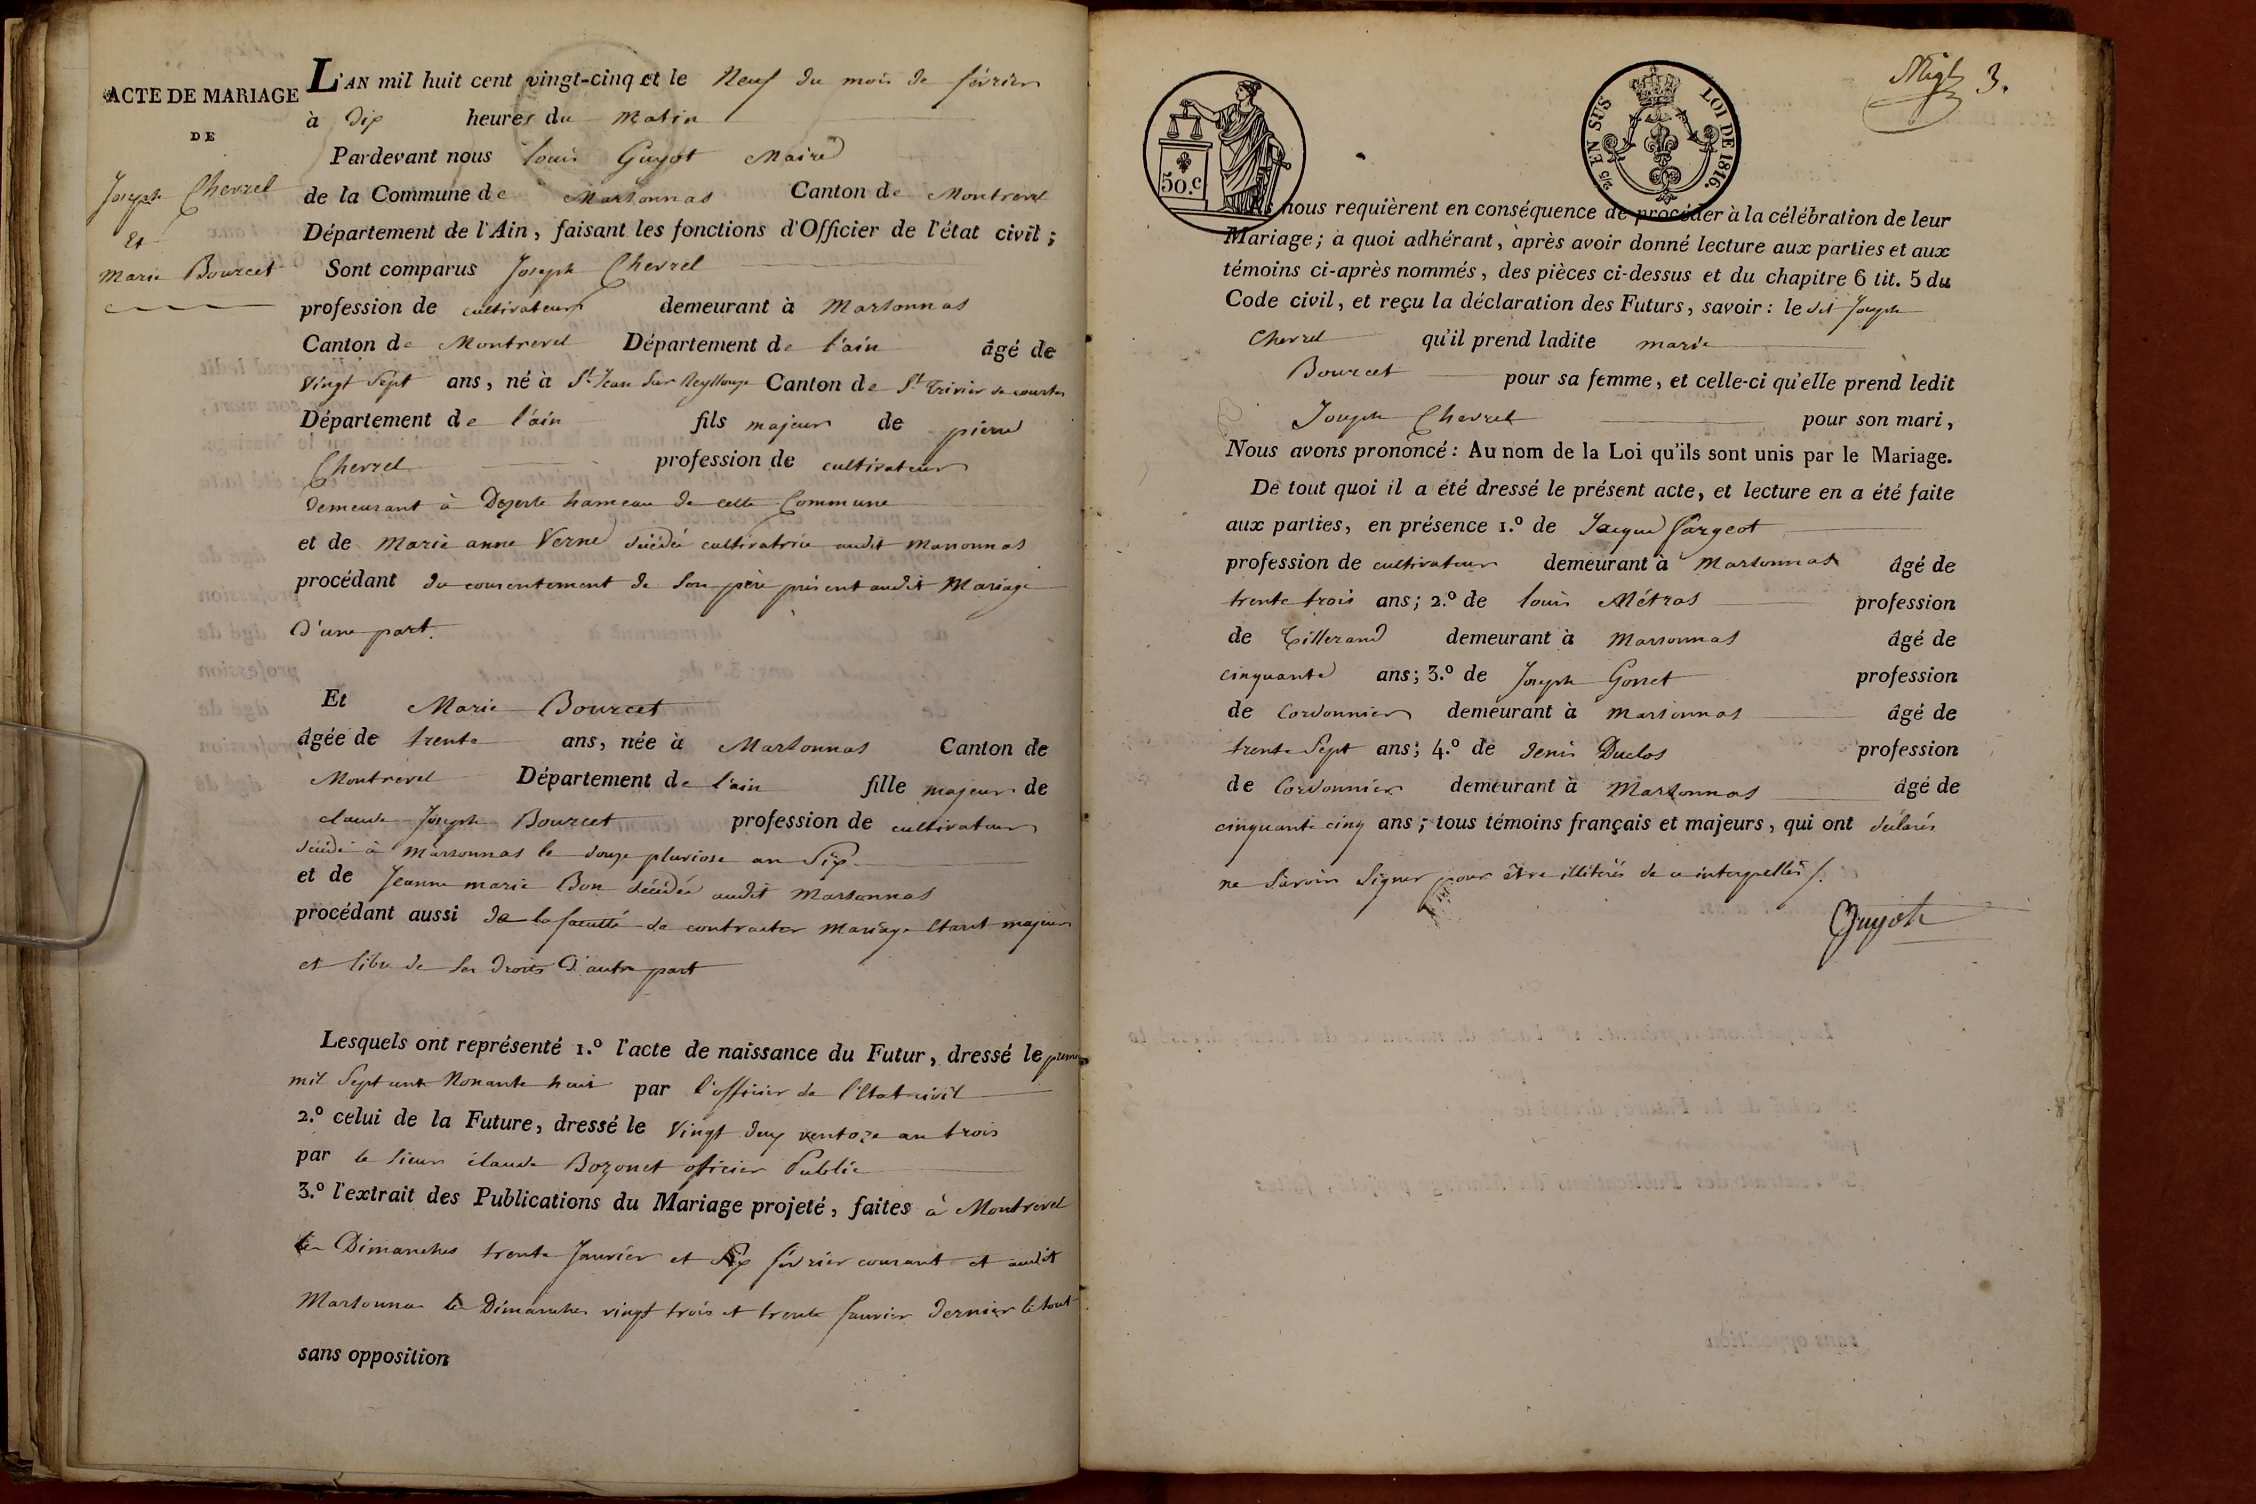 ACTE DE MARIAGE
DE
Joseph Chevrel
Et
Marie Bourcet
L'AN mil huit cent vingt-cinq et le Neuf du mois de février
à Dix heures du Matin
Pardevant nous Louis Guyot Maire
de la Commune de Marsonnas Canton de Montrevel
Département de l'Ain, faisant les fonctions d'Officier de l'état civil;
Sont comparus Joseph Chevrel
profession de cultivateur demeurant à Marsonnas
Canton de Montrevel Département de l'ain âgé de
Vingt Sept ans, né à St Jean Sur Reyssouze Canton de St Trivier de courtes
Département de l'ain fils majeur de pierre
Chevrel profession de cultivateur
demeurant à Dezerte hameau de cette Commune
et de Marie anne Verne décédée cultivatrice audit Marsonnas
procédant du consentement de Son père présent audit Mariage
D'une part.
Et Marie Bourcet
âgée de trente ans, née à Marsonnas Canton de
Montrevel Département de l'ain fille majeure de
claude Joseph Bourcet profession de cultivateur
décédé à Marsonnas le douze pluviose an Six
et de Jeanne marie Bon décédée audit Marsonnas
procédant aussi de la faculté de contracter Mariage Etant majeure
et libre de Ses Droits D'autre part
Lesquels ont représenté 1.º l'acte de naissance du Futur, dressé le
mil Sept cent Nonante huit par l'officier de l'Etat civil
2.º celui de la Future, dressé le Vingt deux ventoze an trois
par le Sieur claude Bozonet officier Public
3.º l'extrait des Publications du Mariage projeté, faites à Montrevel
les Dimanches trente Janvier et Six février courant et audit
Marsonnas les Dimanches vingt trois et trente Janvier Dernier le tout
sans opposition
50.c
2/5 EN SUS LOI DE 1816.
3.
nous requièrent en conséquence de procéder à la célébration de leur
Mariage; à quoi adhérant, après avoir donné lecture aux parties et aux
témoins ci-après nommés, des pièces ci-dessus et du chapitre 6 tit. 5 du
Code civil, et reçu la déclaration des Futurs, savoir: le dit Joseph
Chevrel qu'il prend ladite marie
Bourcet pour sa femme, et celle-ci qu'elle prend ledit
Joseph Chevrel pour son mari,
Nous avons prononcé: Au nom de la Loi qu'ils sont unis par le Mariage.
De tout quoi il a été dressé le présent acte, et lecture en a été faite
aux parties, en présence 1.º de Jacque Fargeot
profession de cultivateur demeurant à Marsonnas âgé de
trente trois ans; 2.º de Louis Métras profession
de Tisserand demeurant à Marsonnas âgé de
cinquante ans; 3.º de Joseph Gonet profession
de Cordonnier demeurant à Marsonnas âgé de
trente Sept ans; 4.º de Denis Duclos profession
de Cordonnier demeurant à Marsonnas âgé de
cinquante cinq ans; tous témoins français et majeurs, qui ont déclarés
ne Savoir Signer pour être illiterés de ce interpellés /.
Guyot